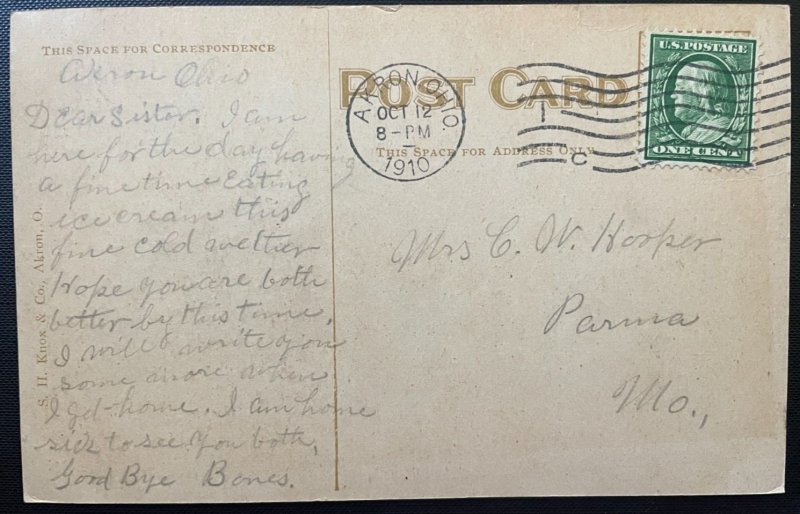 THIS SPACE FOR CORRESPONDENCE
Akron Ohio
Dear Sister. I am
here for the day having
a fine time Eating
ice cream this
fine cold wether
Hope you are both
better by this time.
I will write you
some more when
I get home. I am home
sick to see you both,
Good Bye Bones.
S. H. Knox & Co., Akron, O.
POST CARD
THIS SPACE FOR ADDRESS ONLY
AKRON OHIO.
OCT 12
8-PM
1910
T
C
U.S. POSTAGE
ONE CENT
Mrs C. W. Hooper
Parma
Mo.,